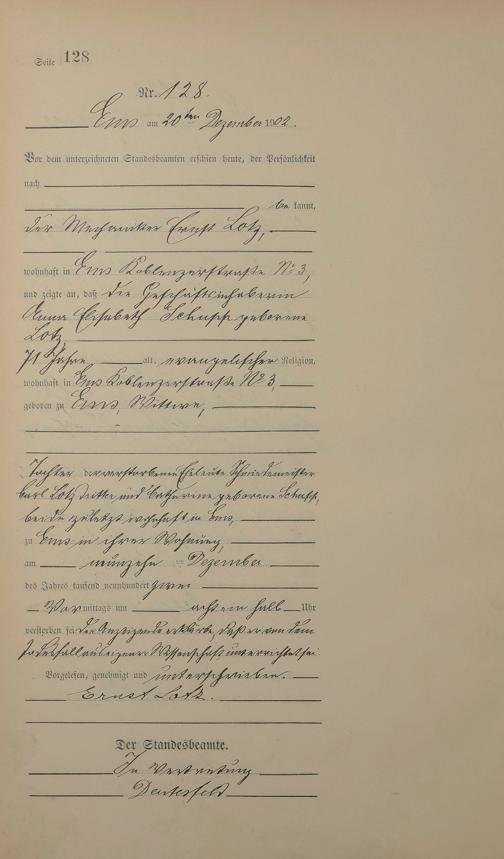 Seite 128
Nr. 128.
Ems am 20ten Dezember 1902.
Vor dem unterzeichneten Standesbeamten erschien heute, der Persönlichkeit
nach
be kannt,
der Mechaniker Ernst Lotz,
wohnhaft in Ems Koblenzerstraße No 3,
und zeigte an, daß die Geschäftsinhaberin
Anna Elisabeth Schupp geborene
Lotz,
71 Jahre, alt, evangelischer Religion,
wohnhaft in Ems Koblenzerstraße No 3,
geboren zu Ems, Wittwe,
Tochter der verstorbenen Eheleute Schmiedemeister
Carl Lotz und Catharine geborene
beide zuletzt wohnhaft in Ems,
zu Ems in ihrer Wohnung,
am neunzehn ten Dezember
des Jahres tausend neunhundert zwei
Vor mittags um acht ein halb Uhr
verstorben sei. Der Anzeigende erklärte, daß er von dem
Todesfall aus eigener Wissenschaft unterrichtet sei
Vorgelesen, genehmigt und unterschrieben.
Ernst Lotz.
Der Standesbeamte.
In Vertretung